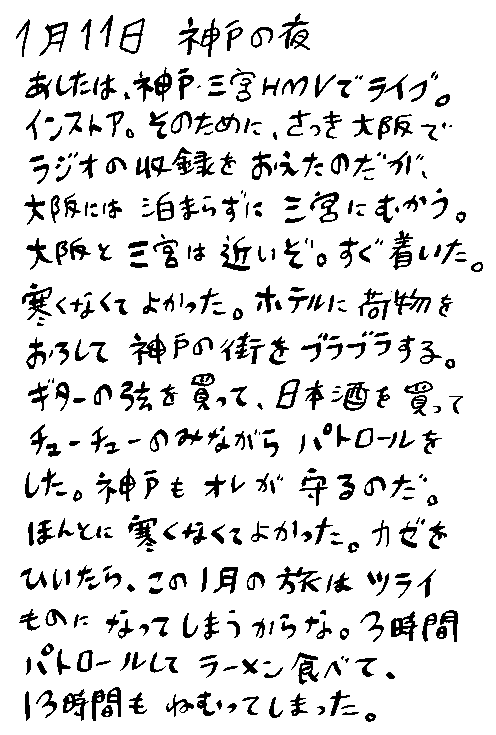 1月11日 神戸の夜
あしたは、神戸・三宮HMVでライブ。
インストア。そのために、さっき大阪で
ラジオの収録をおえたのだが、
大阪には泊まらずに三宮にむかう。
大阪と三宮は近いぞ。すぐ着いた。
寒くなくてよかった。ホテルに荷物を
おろして神戸の街をブラブラする。
ギターの弦を買って、日本酒を買って
チューチューのみながらパトロールを
した。神戸もオレが守るのだ。
ほんとに寒くなくてよかった。カゼを
ひいたら、この1月の旅はツライ
ものになってしまうからな。3時間
パトロールしてラーメン食べて、
13時間もねむってしまった。